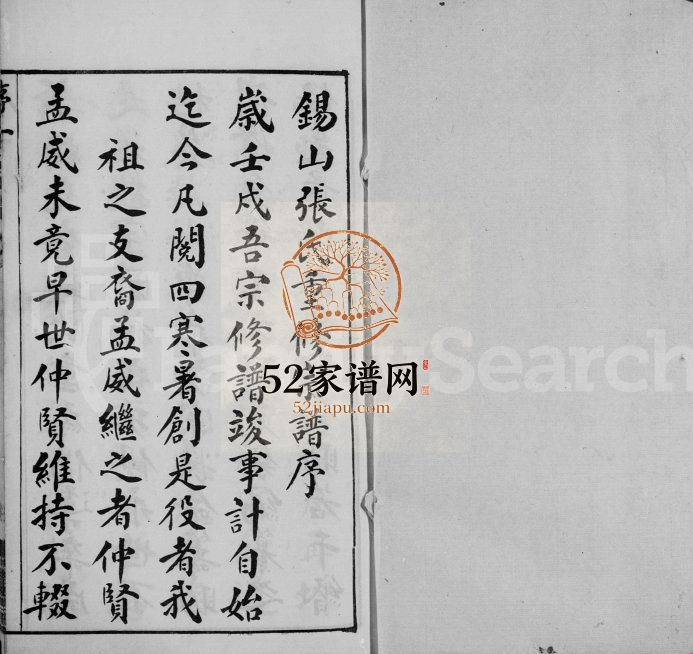 錫山張氏重修宗譜序
歲壬戌吾宗修譜竣事計自始
迄今凡閱四寒暑創是役者我
祖之支裔孟威繼之者仲賢
孟威未竟早世仲賢維持不輟
序一
52家谱网
52jiapu.com
Search